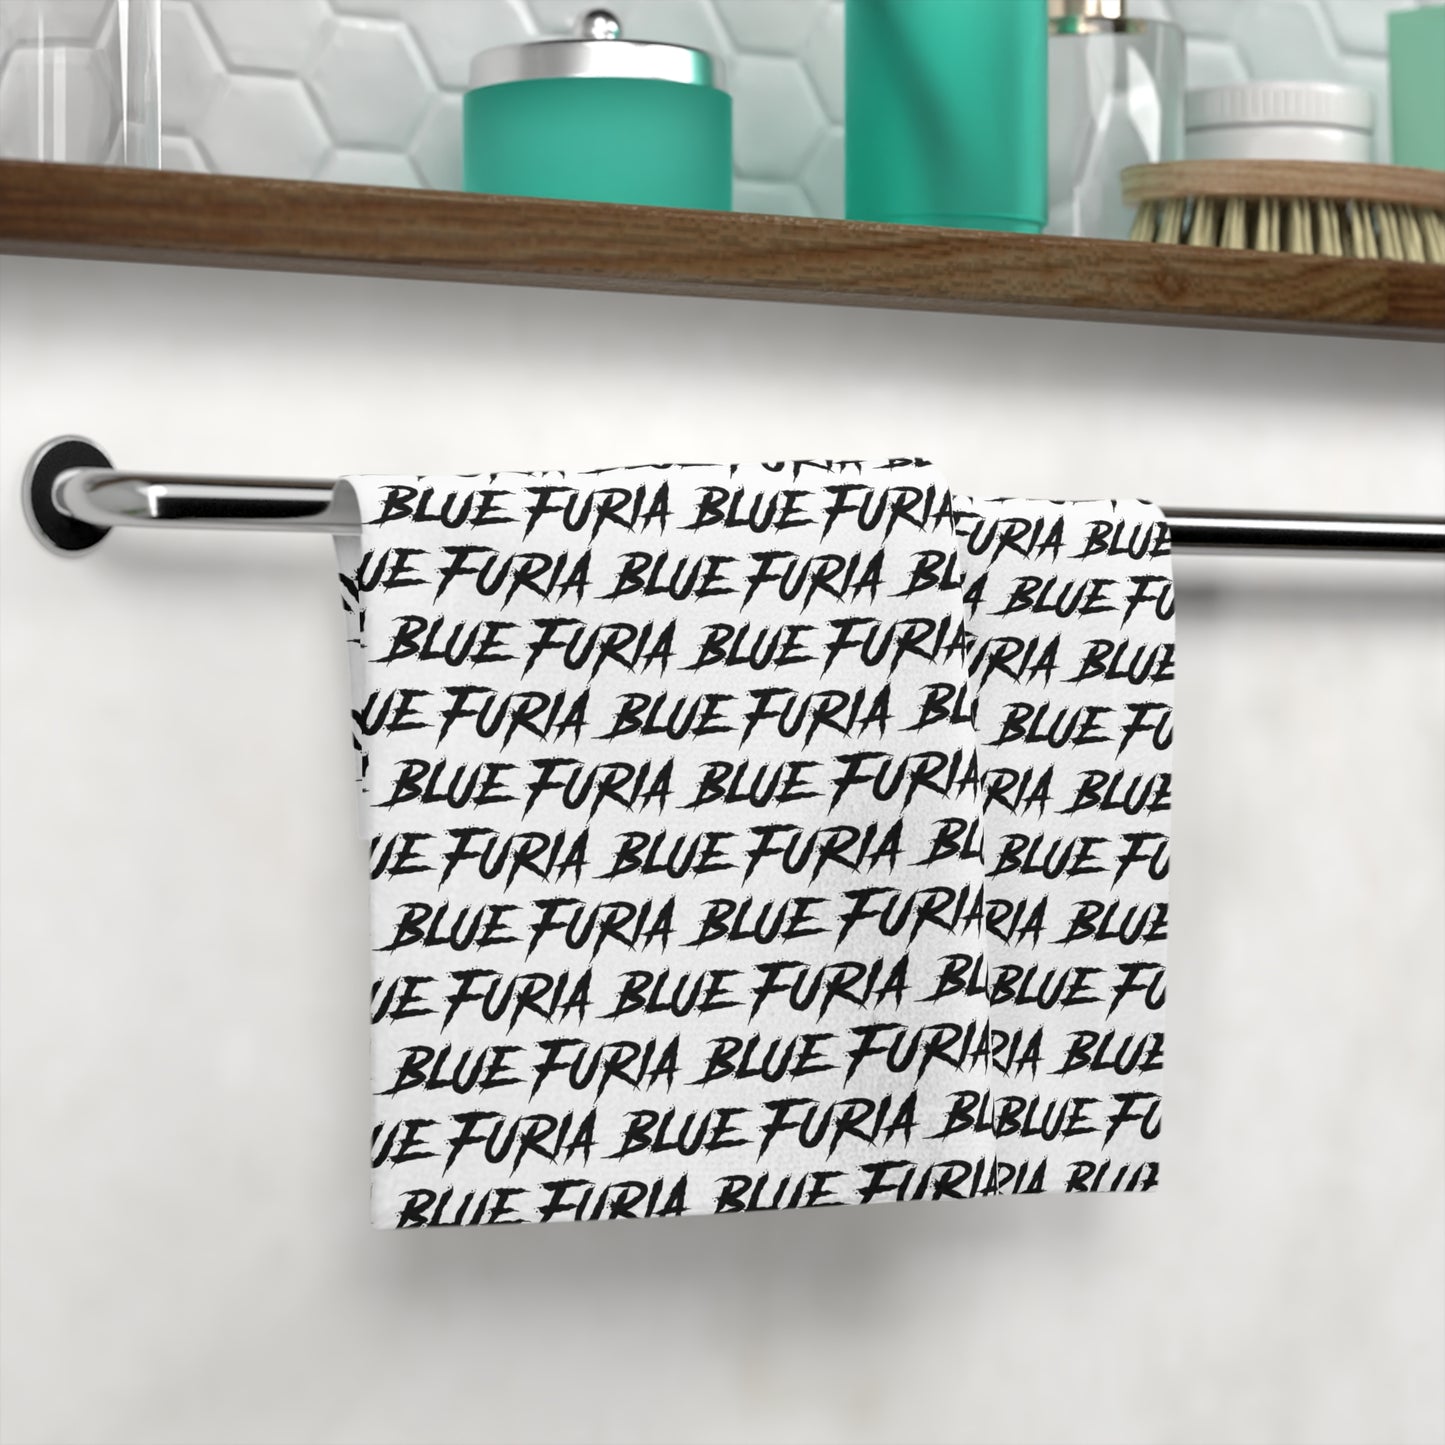 BLUE FURIA BLUE FURIA FURIA BLUE
UE FURIA BLUE FURIA BL A BLUE FU
BLUE FURIA BLUE FURIA URIA BLUE
UE FURIA BLUE FURIA BLU BLUE FU
BLUE FURIA BLUE FURIA RIA BLUE
UE FURIA BLUE FURIA BLU BLUE FU
BLUE FURIA BLUE FURIA RIA BLUE
UE FURIA BLUE FURIA BLU BLUE FU
BLUE FURIA BLUE FURIA RIA BLUE
UE FURIA BLUE FURIA BLU BLUE FU
BLUE FURIA BLUE FURIA RIA BLUE